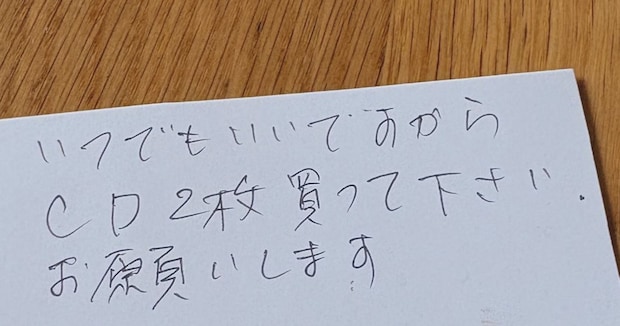 いつでもいいですから
CD2枚買って下さい.
お願いします